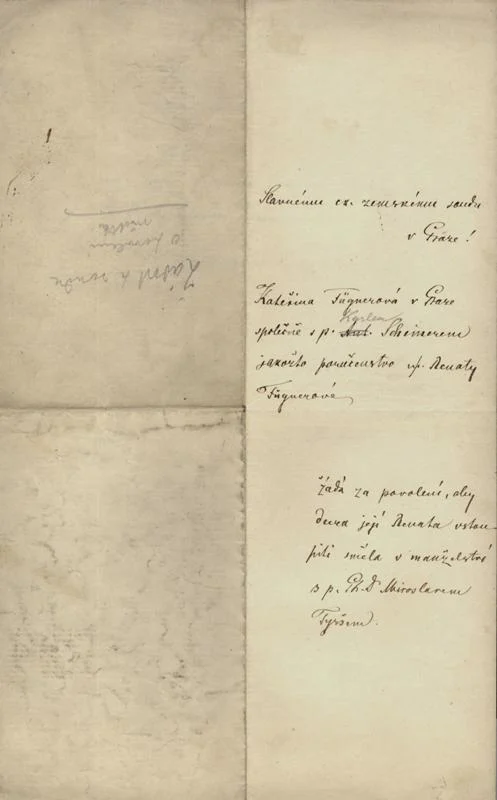 Slavnému ck. zemskému soudu
v Praze!
Kateřina Fügnerová v Praze
Karlem
společně s p. Ant. Scheinerem
jakožto poručenstvo Renaty
Fügnerové
žádá za povolení, aby
dcera její Renata vstou-
piti směla v manželství
s p. Ph. Dr Miroslavem
Tyršem.
Žádost k soudu
o povolení